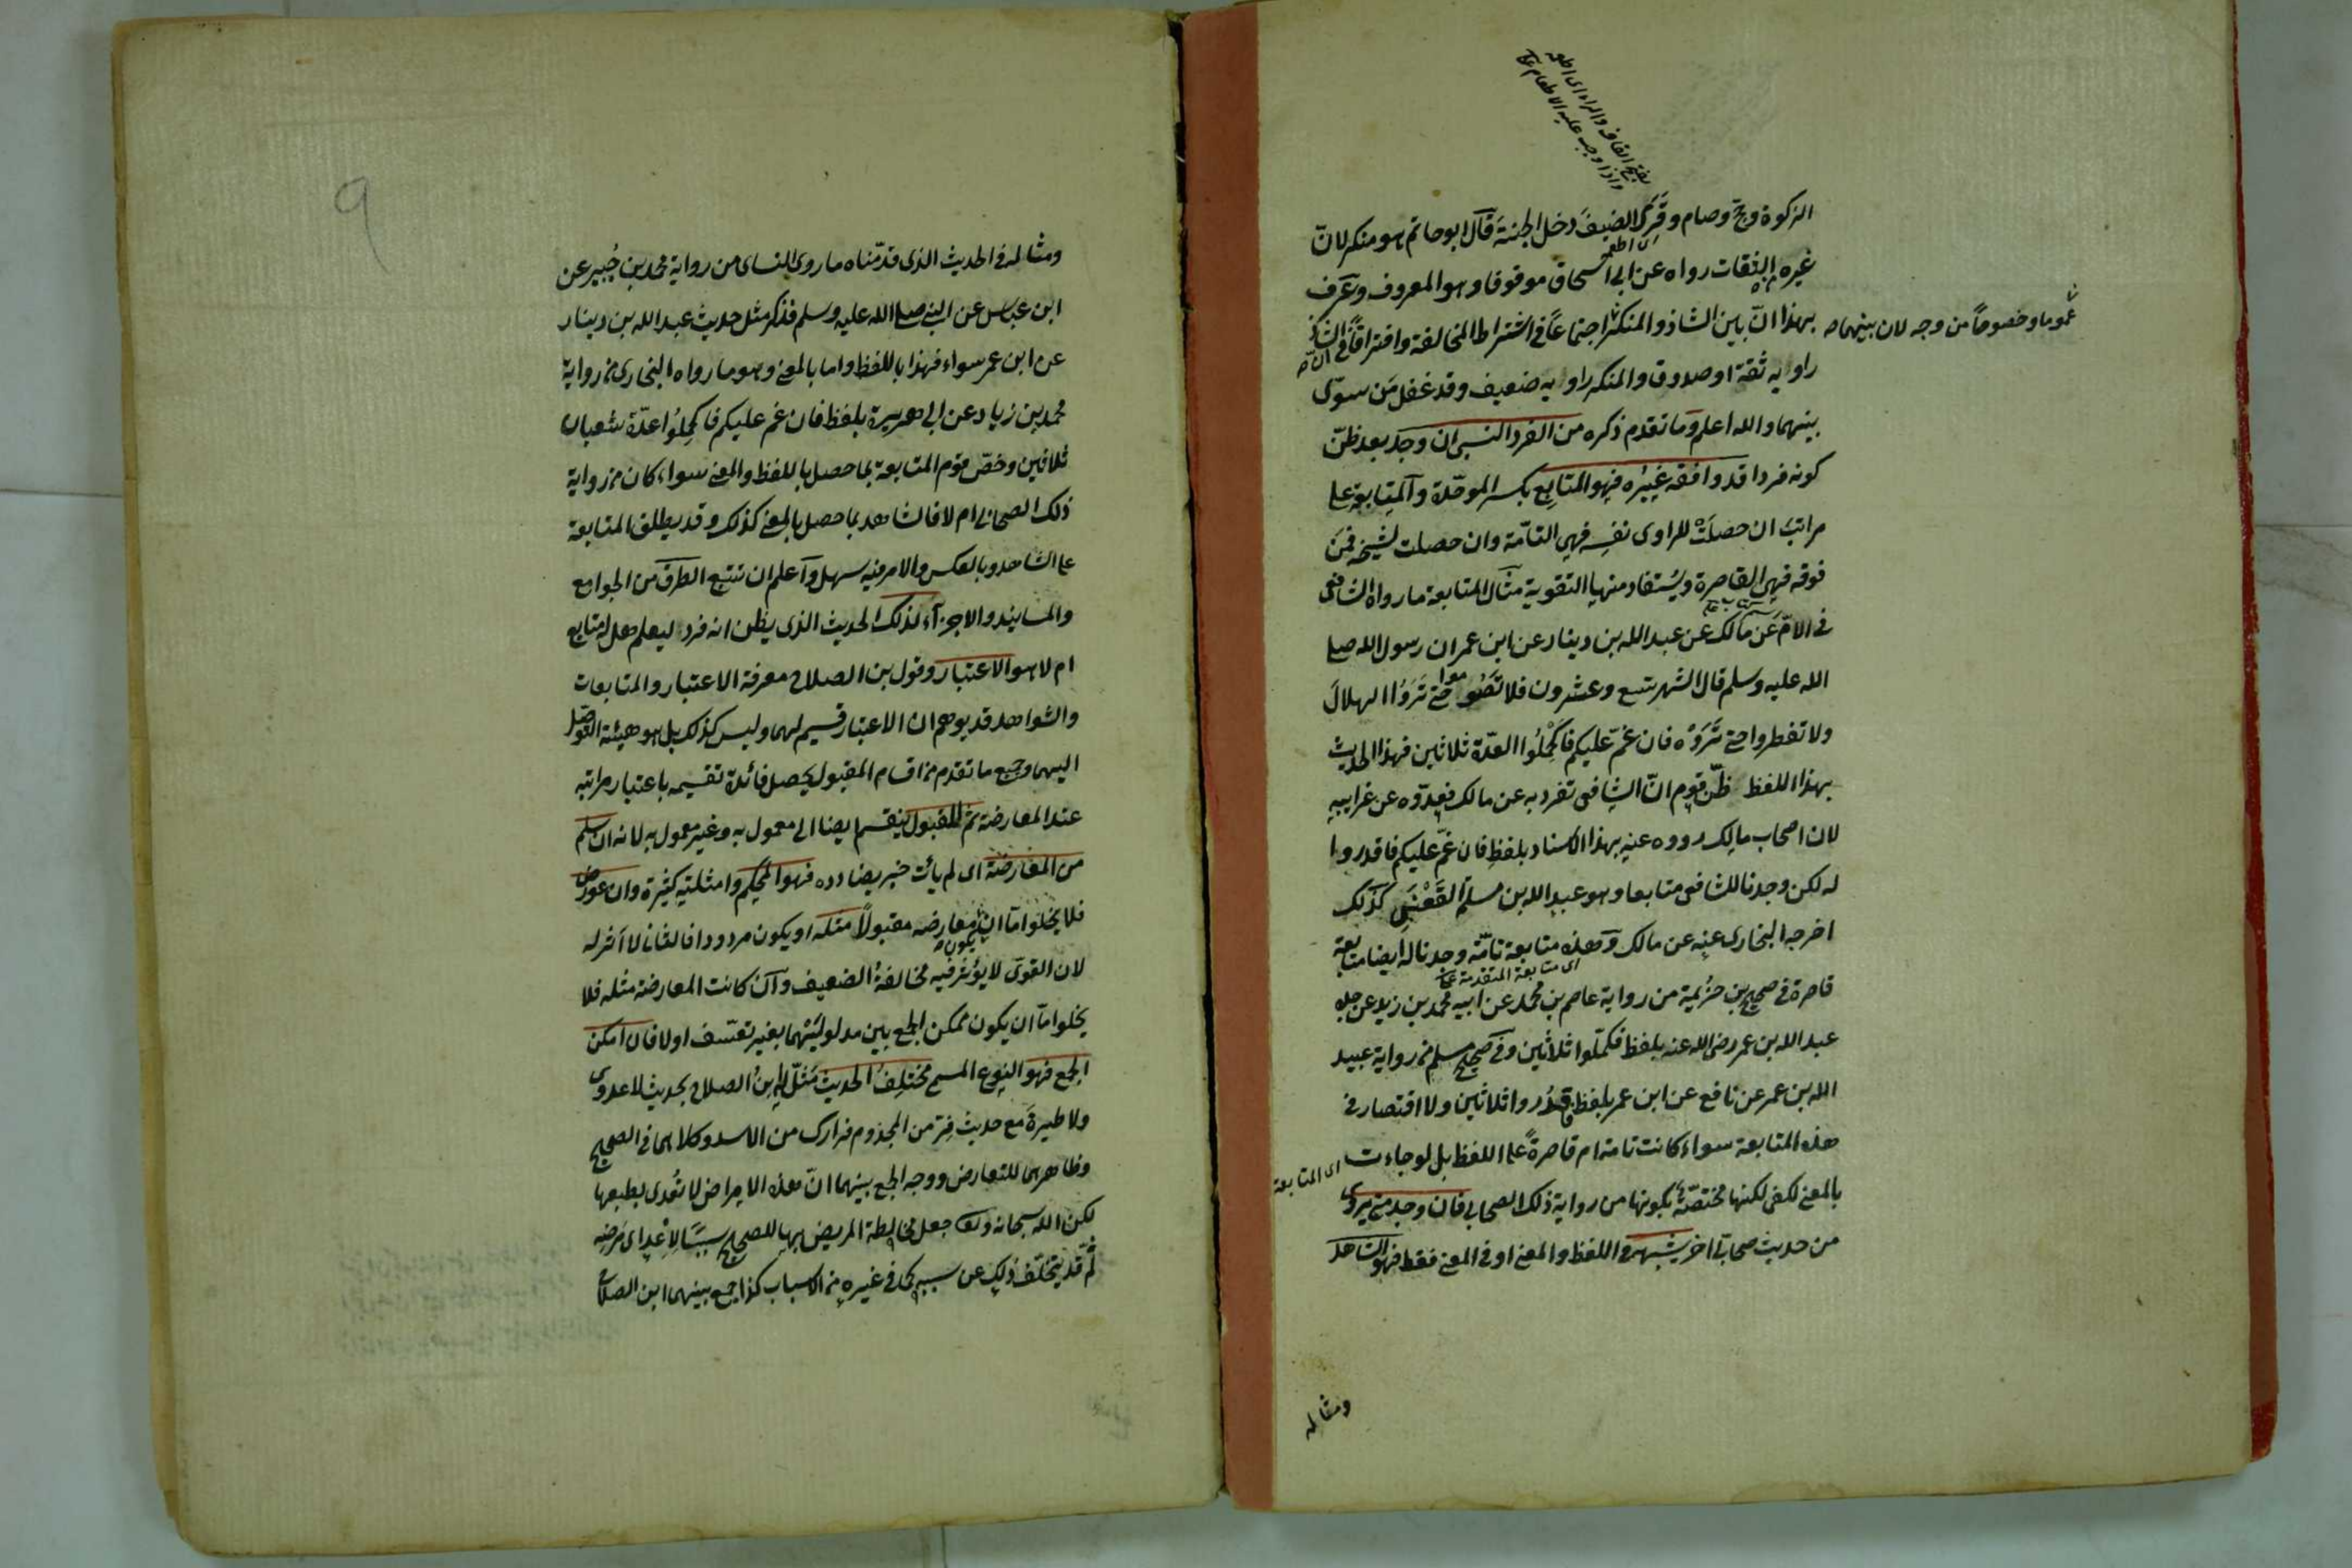 بفتح القاف والراء اى اطعم
واذا وجب عليه الاطعام
الزكوة وحج وصام وقَرَى الضيفَ دخل الجنة قال ابو حاتم هو منكر لانّ
اى اطعم
غيره من الثقات رواه عن ابى اسحاق موقوفا وهو المعروف وعُرف
بهذا انّ بين الشاذ والمنكر اجتماعاً فى اشتراط المخالفة وافتراقاً فى انّ الشاذ
عموما وخصوصاً من وجه لان بينهما
راويه ثقة او صدوق والمنكر راويه ضعيف وقد غفل مَن سوّى
بينهما والله اعلم وما تقدم ذكره من الفرد النسبى ان وجد بعد ظنّ
كونه فردا قد وافقه غيره فهو المتابِع بكسر الموحّدة والمتابعة على
مراتبَ ان حصلَتْ للراوى نفسِه فهى التامّة وان حصلت لشيخه فمَن
فوقه فهى القاصرة ويُستفاد منها التقوية مثال المتابعة ما رواه الشافعى
فى الامّ عَن مالك عن عبد الله بن دينار عن ابن عمر ان رسول الله صلى
الله عليه وسلم قال الشهر تسع وعشرون فلا تَصُوموا حتى تَرَوُا الهلالَ
ولا تفطروا حتى تَرَوْه فان غمّ عليكم فاكْمِلُوا العدّة ثلاثين فهذا الحديث
بهذا اللفظ ظنّ قوم انّ الشافعى تفرد به عن مالك فعدّوه عن غرايبه
لان اصحاب مالك رووه عنه بهذا الاسناد بلفظ فان غمّ عليكم فاقدروا
له لكن وجدنا للشافعى متابعا وهو عبد الله بن مسلمة القَعْنَبِى كذلك
اخرجه البخارى عنه عن مالك وهذه متابعة تامّة وجدنا له ايضا متابعة
اى متابعة المتقدمة
قاصرة فى صحيح بن خُزيمة من رواية عاصم بن محمد عن ابيه محمد بن زيد عن جده
عبد الله بن عمر رضى الله عنه بلفظ فكمّلوا ثلاثين وفى صحيح مسلم من رواية عبيد
الله بن عمر عن نافع عن ابن عمر بلفظ فاقدُروا ثلاثين ولا اقتصار فى
هذه المتابعة سواء كانت تامة ام قاصرةً على اللفظ بل لو جاءت
اى المتابعة
بالمعنى لكفى لكنها مختصّة بكونها من رواية ذلك الصحابى فان وجد متن يروى
من حديث صحابى اخر يشبهه فى اللفظ والمعنى او فى المعنى فقط فهو الشاهد
ومثاله
٩
ومثاله فى الحديث الذى قدّمناه ما روى النساى من رواية محمد بن جُبير عن
ابن عباس عن النبى صلى الله عليه وسلم فذكر مثل حديث عبد الله بن دينار
عن ابن عمر سواء فهذا باللفظ واما بالمعنى وهو ما رواه البخارى من رواية
محمد بن زياد عن ابى هريرة بلفظ فان غم عليكم فاكمِلُوا عدّة شعبان
ثلاثين وخصّ قوم المتابعة بما حصل باللفظ والمعنى سواء كان من رواية
ذلك الصحابى ام لا فالشاهد بما حصل بالمعنى كذلك وقد يطلق المتابعة
على الشاهد وبالعكس والامر فيه سهل واعلم ان تتبع الطرق من الجوامع
والمسانيد والاجزاء لذلك الحديث الذى يظن انه فرد ليعلم هل له متابع
ام لا هو الاعتبار وقول بن الصلاح معرفة الاعتبار والمتابعات
والشواهد قد يوهم ان الاعتبار قسيم لهما وليس كذلك بل هو هيئة التوصّل
اليهما وجميع ما تقدم من اقسام المقبول يحصل فائدة تقسيمه باعتبار مراتبه
عند المعارضة ثم المقبول ينقسم ايضا الى معمول به وغير معمول به لانه ان سلم
من المعارضة اى لم يأت خبر يضادده فهو المحكم وامثلته كثيرة وان عورض
فلا يخلوا امّا ان يكون معارضه مقبولًا مثله او يكون مردودا فالثانى لا اثر له
لان القوى لا يؤثر فيه مخالفةُ الضعيف وان كانت المعارضة مثله فلا
يخلوا امّا ان يكون ممكن الجمع بين مدلوليْهما بغير تعسّف اولا فان امكن
الجمع فهو النوع المسمى مختلِفُ الحديث مَثّل له ابنُ الصلاح بحديث لا عدوى
ولا طيرةَ مع حديث فِرّ من المجذوم فرارك من الاسد وكلاهما فى الصحيح
وظاهرهما للتعارض ووجه الجمع بينهما انّ هذه الامراض لا تُعدى بطبعها
لكن الله سبحانه وتعالى جعل مخالطة المريض بها للصحيح سببًا لِاِعْدِاى مَرَضِه
ثم قد يتخلّف ذلك عن سببه كما فى غيره من الاسباب كذا جمع بينهما ابن الصلاح